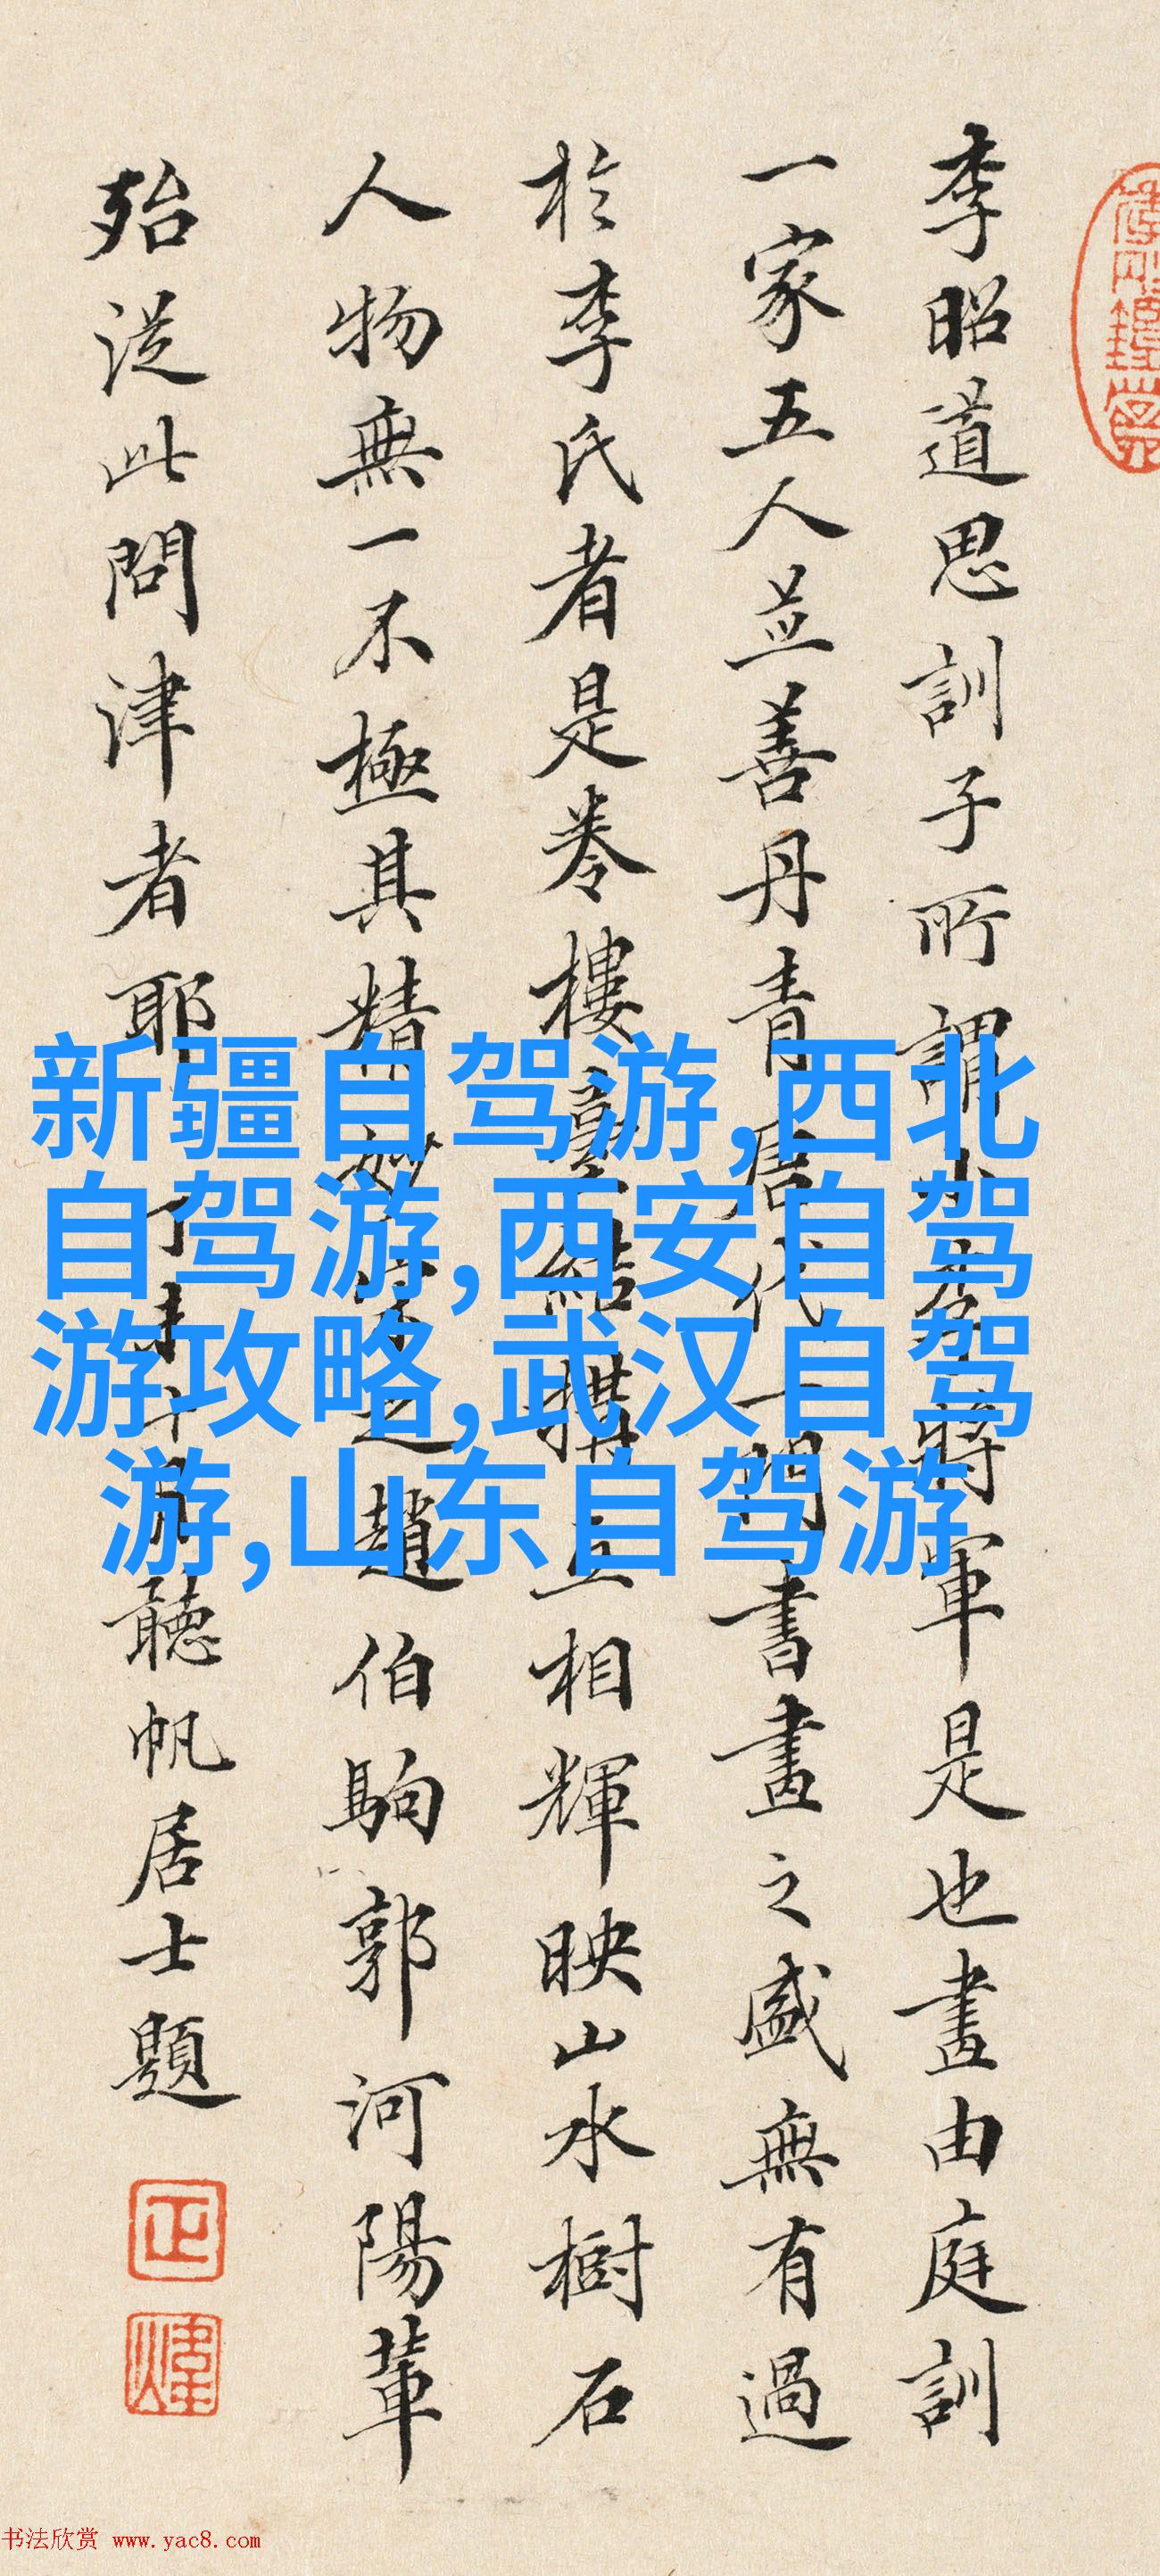 李昭道思訓子所謂小李將軍是也畫由庭訓
一家五人並善丹青唐代一門書畫之盛無有過
於李氏者是卷樓臺結構互相輝映山水樹石
人物無一不極其精妙之趙伯駒郭河陽輩
殆從此問津者耶丁未十月聽帆居士題
正
煒
新疆自驾游,西北
自驾游,西安自驾
游攻略,武汉自驾
游,山东自驾游
书法欣赏 www.yac8.com